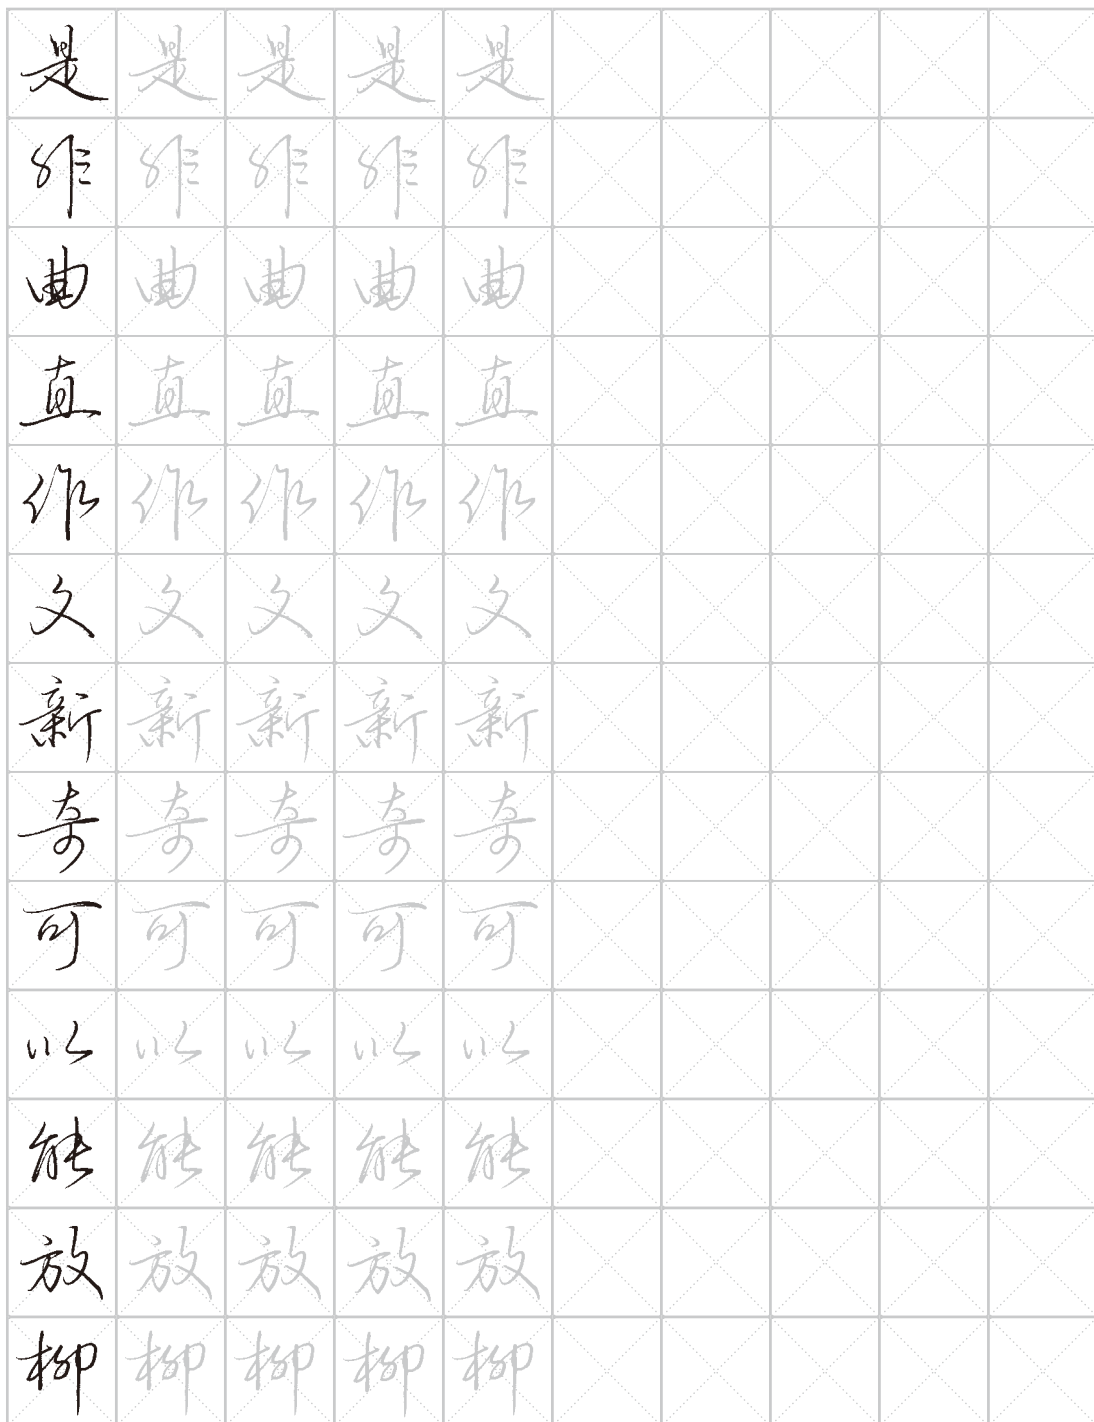 是 是 是 是 是
非 非 非 非 非
曲 曲 曲 曲 曲
直 直 直 直 直
作 作 作 作 作
文 文 文 文 文
新 新 新 新 新
奇 奇 奇 奇 奇
可 可 可 可 可
以 以 以 以 以
能 能 能 能 能
放 放 放 放 放
柳 柳 柳 柳 柳